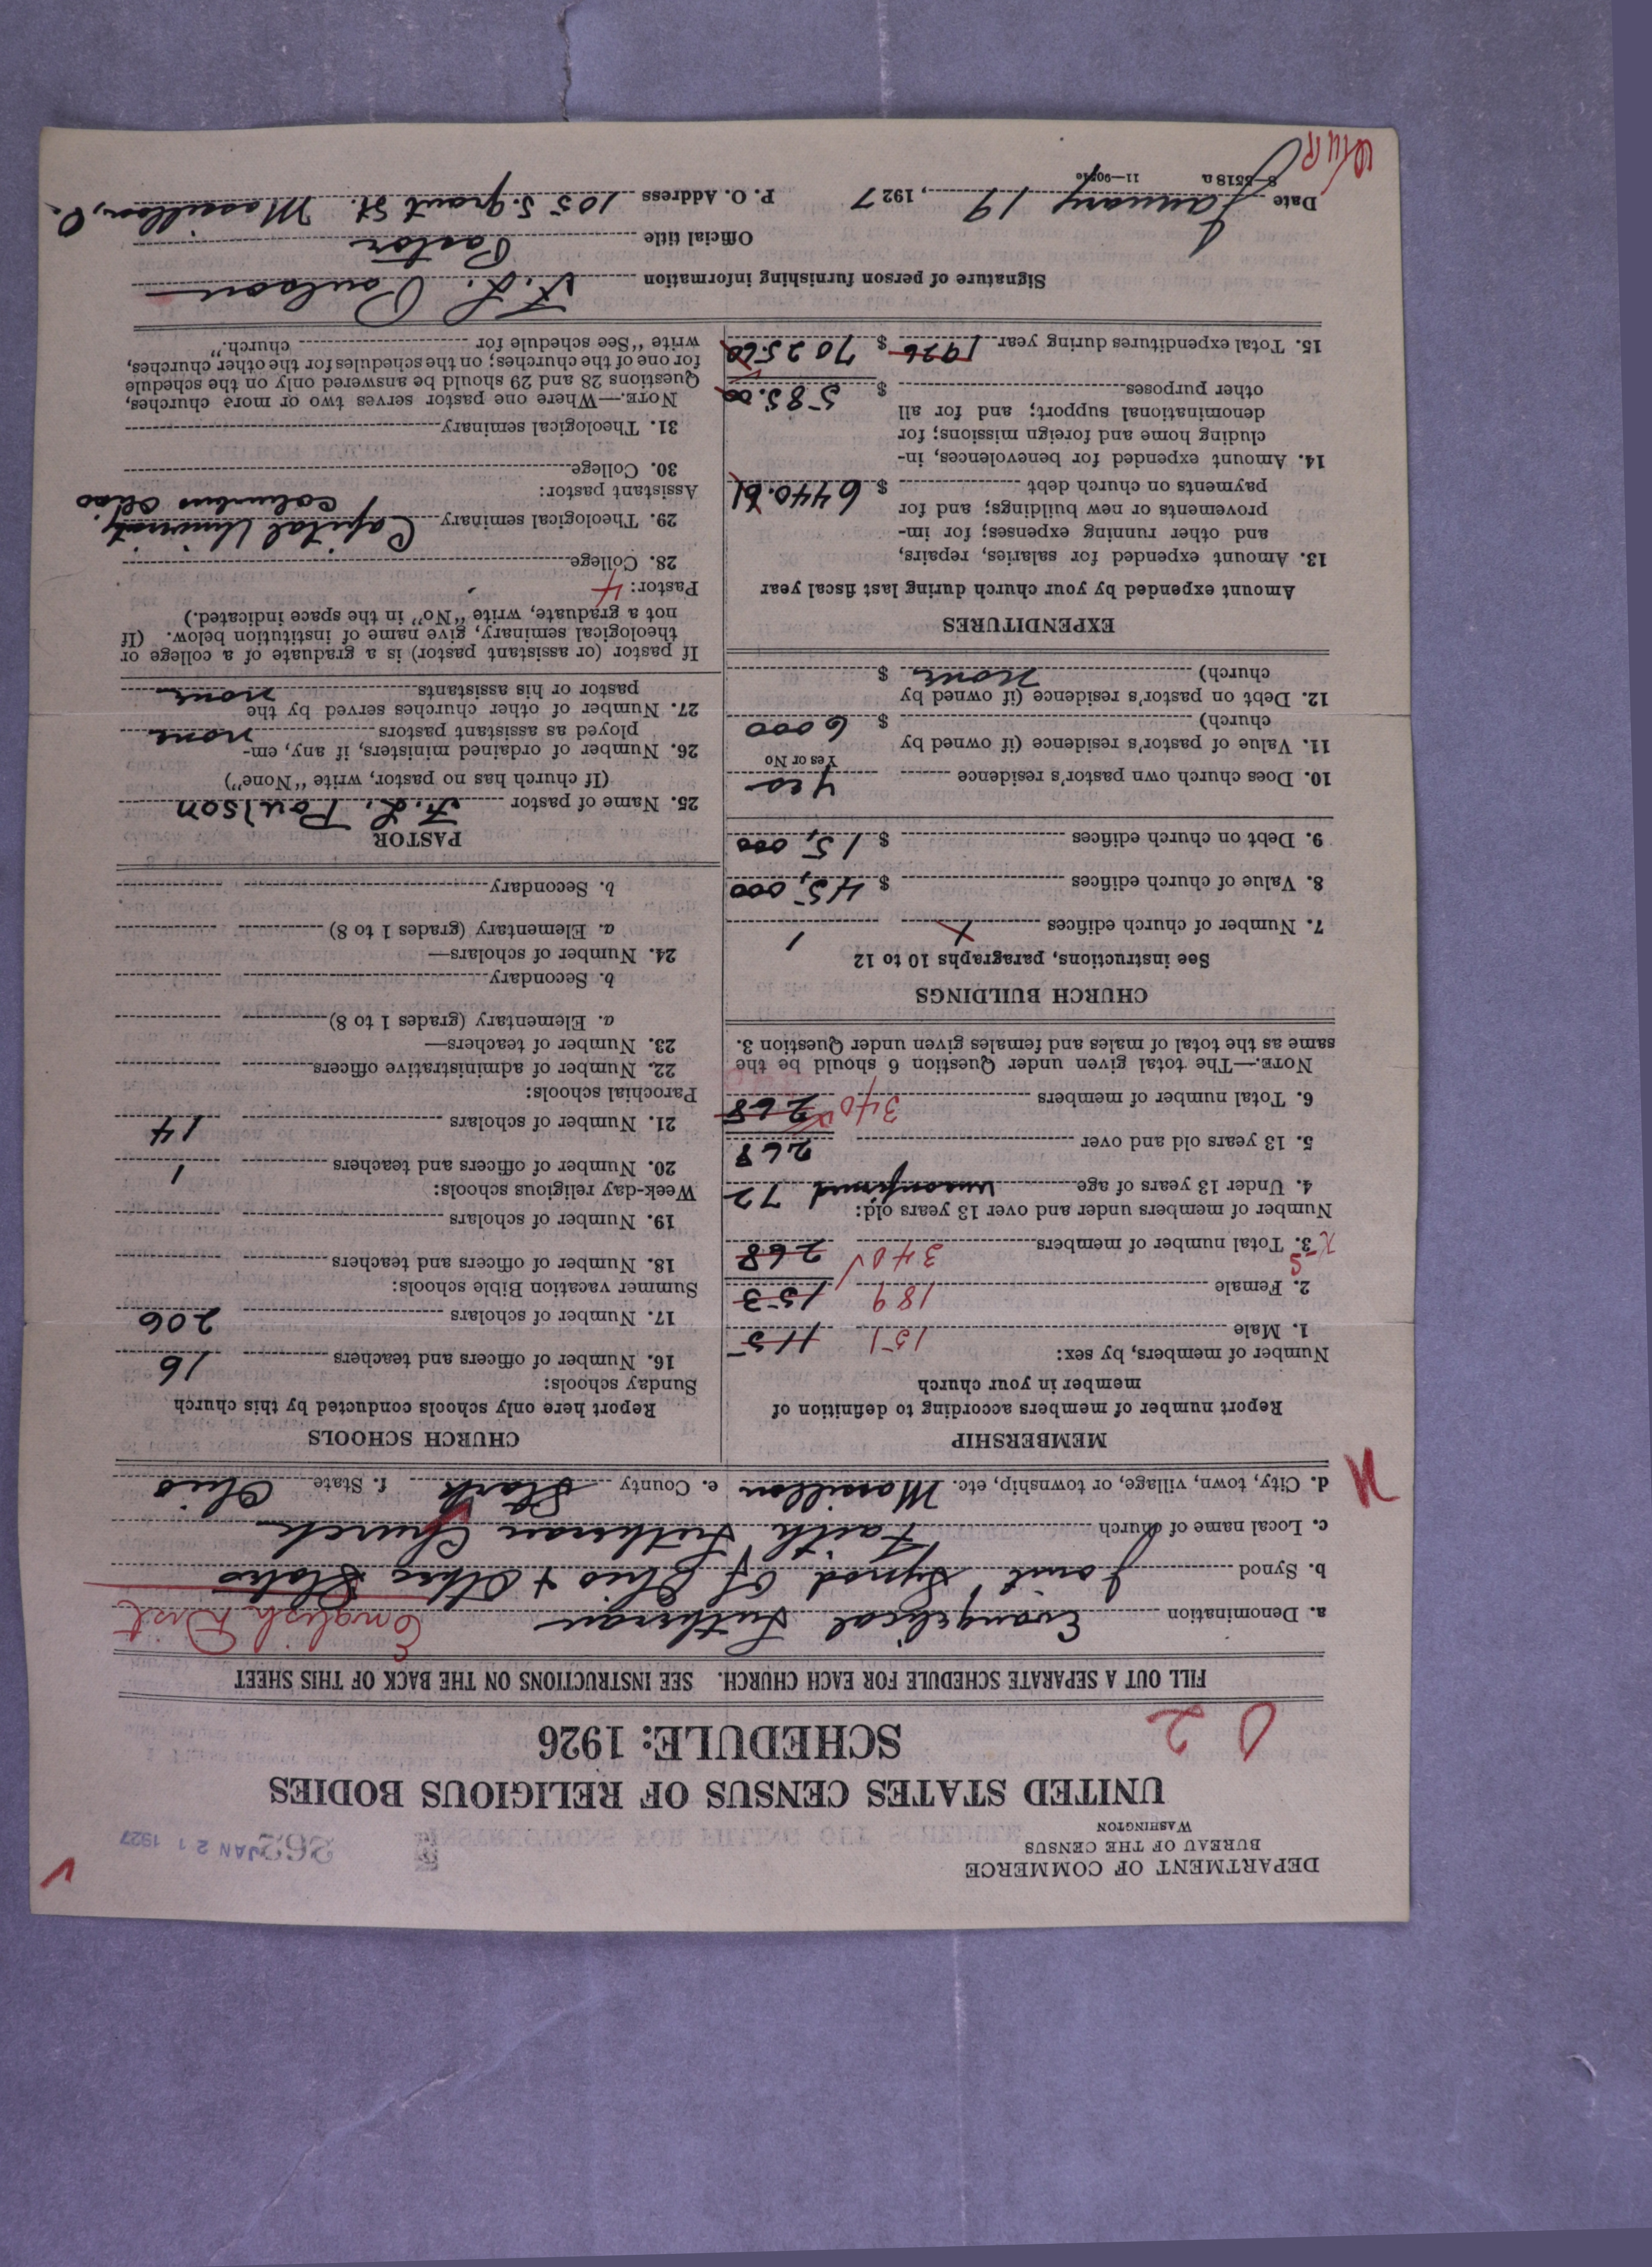 DEPARTMENT OF COMMERCE
BUREAU OF THE CENSUS
WASHINGTON
JAN 21 1927
UNITED STATES CENSUS OF RELIGIOUS BODIES
SCHEDULE: 1926
FILL OUT A SEPARATE SCHEDULE FOR EACH CHURCH. SEE INSTRUCTIONS ON THE BACK OF THIS SHEET
a. Denomination Evangelical Lutheran English Dist
b. Synod Joint Synod of Ohio + Other States
c. Local name of church Faith Lutheran Church
d. City, town, village, or township, etc. Massillon e. County Stark f. State Ohio
MEMBERSHIP
Report number of members according to definition of
member in your church
Number of members, by sex:
1. Male 151 115
2. Female 189 153
3. Total number of members 340 268
Number of members under and over 13 years old:
4. Under 13 years of age unconfirmed 72
5. 13 years old and over 268
6. Total number of members 340 268
NOTE.—The total given under Question 6 should be the
same as the total of males and females given under Question 3.
CHURCH BUILDINGS
See instructions, paragraphs 10 to 12
7. Number of church edifices 1
8. Value of church edifices $ 45,000
9. Debt on church edifices $ 15,000
10. Does church own pastor's residence Yes
Yes or No
11. Value of pastor's residence (if owned by
church) $ 6000
12. Debt on pastor's residence (if owned by
church) none $
EXPENDITURES
Amount expended by your church during last fiscal year
13. Amount expended for salaries, repairs,
and other running expenses; for im-
provements or new buildings; and for
payments on church debt $ 6440.61
14. Amount expended for benevolences, in-
cluding home and foreign missions; for
denominational support; and for all
other purposes $ 585.00
15. Total expenditures during year 1926 $ 7025.60
CHURCH SCHOOLS
Report here only schools conducted by this church
Sunday schools:
16. Number of officers and teachers 16
17. Number of scholars 206
Summer vacation Bible schools:
18. Number of officers and teachers
19. Number of scholars
Week-day religious schools:
20. Number of officers and teachers 1
21. Number of scholars 14
Parochial schools:
22. Number of administrative officers
23. Number of teachers—
a. Elementary (grades 1 to 8)
b. Secondary
24. Number of scholars—
a. Elementary (grades 1 to 8)
b. Secondary
PASTOR
25. Name of pastor F. L. Poulson
(If church has no pastor, write "None")
26. Number of ordained ministers, if any, em-
ployed as assistant pastors none
27. Number of other churches served by the
pastor or his assistants none
If pastor (or assistant pastor) is a graduate of a college or
theological seminary, give name of institution below. (If
not a graduate, write "No" in the space indicated.)
Pastor: 4
28. College
29. Theological seminary Capital University
Columbus Ohio
Assistant pastor:
30. College
31. Theological seminary
NOTE.—Where one pastor serves two or more churches,
Questions 28 and 29 should be answered only on the schedule
for one of the churches; on the schedules for the other churches,
write "See schedule for church."
Signature of person furnishing information F. L. Poulson
Official title Pastor
Date January 19, 1927 P. O. Address 105 S. Grant St. Massillon, O.
8—5518a 11—9051a